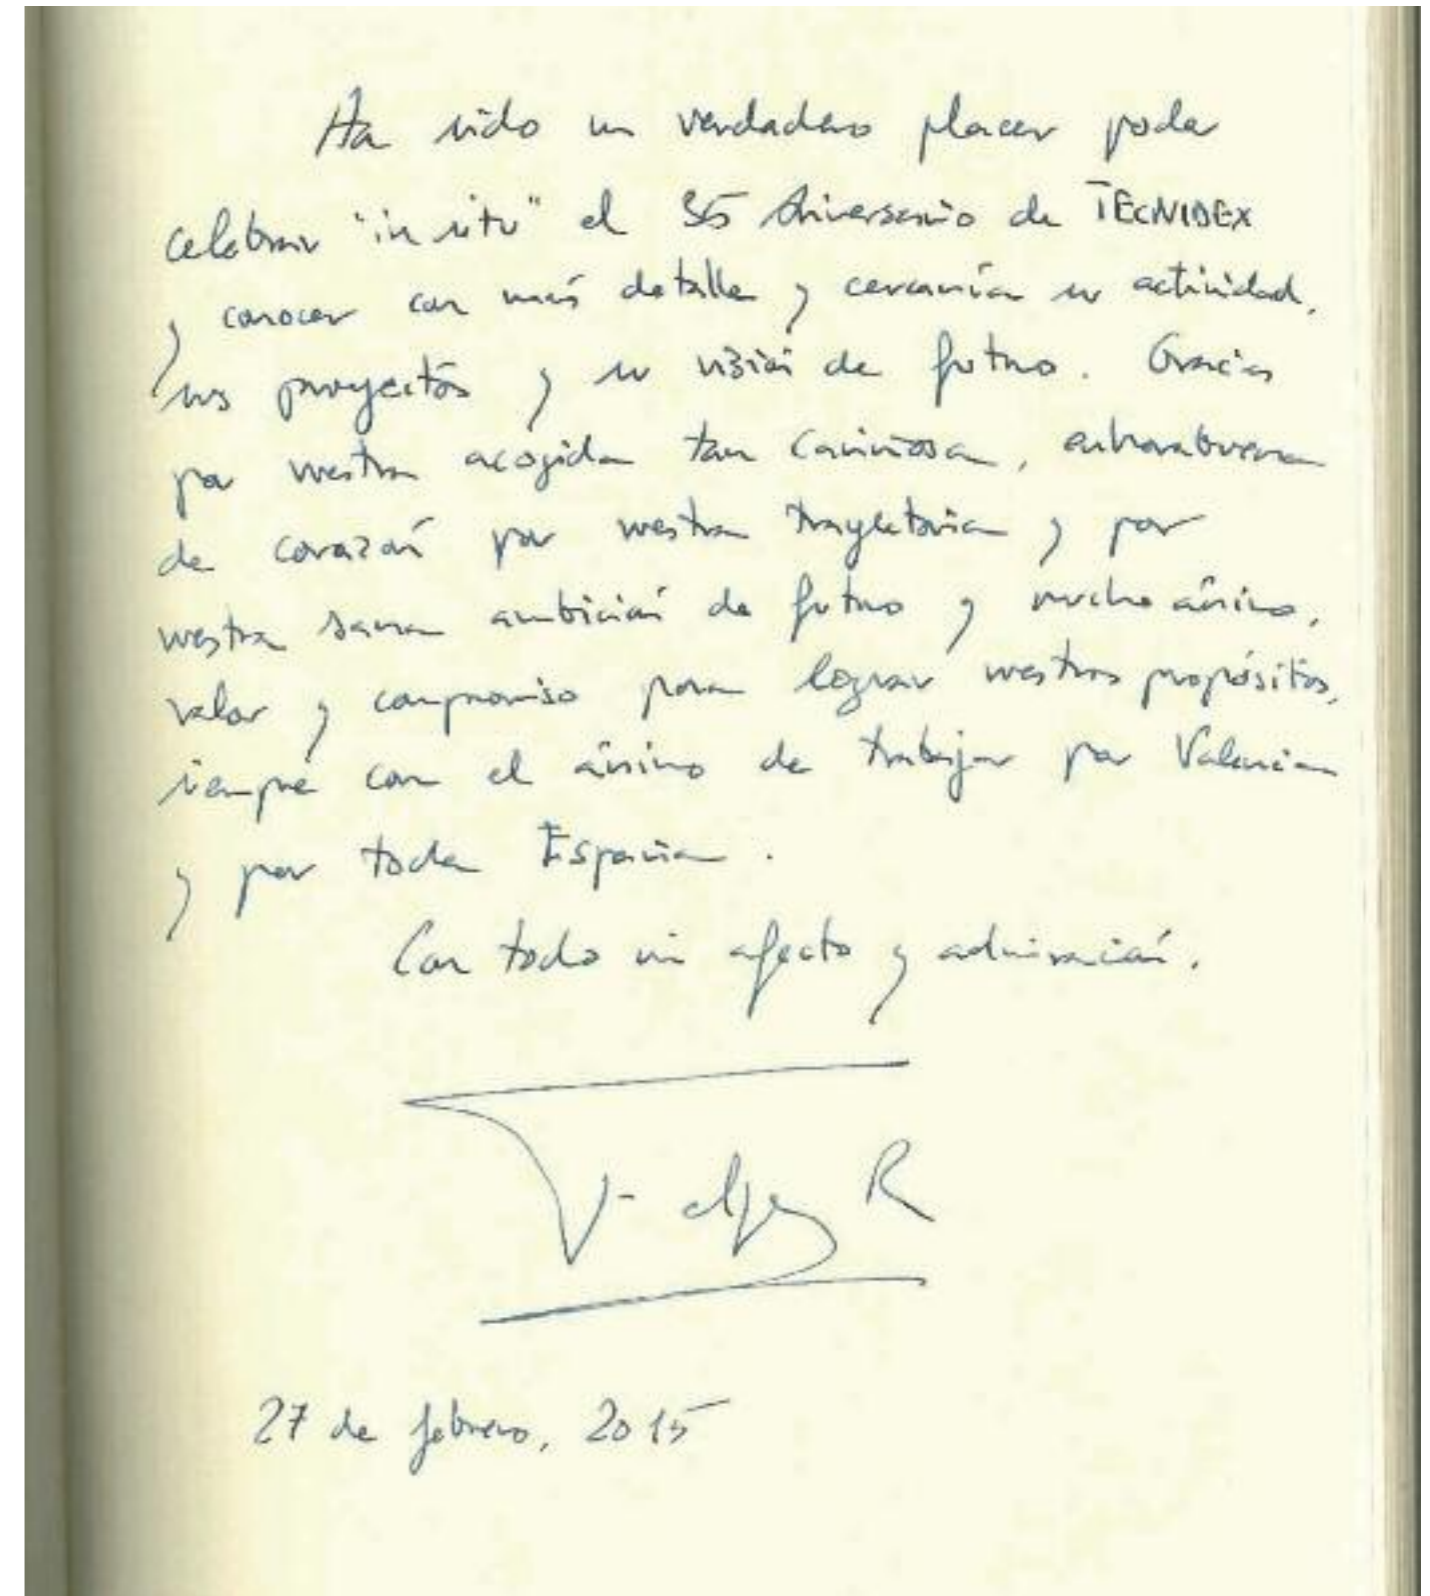 Ha sido un verdadero placer poder
celebrar "in situ" el 35 Aniversario de TECNIDEX
y conocer con más detalle y cercanía su actividad,
sus proyectos y su visión de futuro. Gracias
por vuestra acogida tan cariñosa, enhorabuena
de corazón por vuestra trayectoria y por
vuestra sana ambición de futuro y mucho ánimo,
valor y compromiso para lograr vuestros propósitos,
siempre con el ánimo de trabajar por Valencia
y por toda España.
Con todo mi afecto y admiración.
Felipe R
27 de febrero, 2015